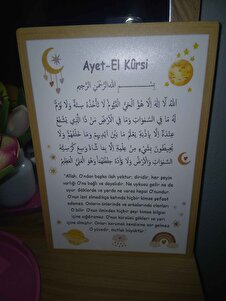 Ayet-El Kürsi
بِسْــــــمِ اللهِ الرَّحْمٰنِ الرَّحِيْمِ
اَللهُ لَا اِلٰهَ اِلَّا هُوَ الْحَيُّ الْقَيُّومُ لَا تَأْخُذُهُ سِنَةٌ وَلَا نَوْمٌ
لَهُ مَا فِي السَّمٰوَاتِ وَمَا فِي الْاَرْضِ مَنْ ذَا الَّذِي يَشْفَعُ
عِنْدَهُ اِلَّا بِاِذْنِهِ يَعْلَمُ مَا بَيْنَ اَيْدِيهِمْ وَمَا خَلْفَهُمْ وَلَا
يُحِيطُونَ بِشَيْءٍ مِنْ عِلْمِهِ اِلَّا بِمَا شَاءَ وَسِعَ كُرْسِيُّهُ
السَّمٰوَاتِ وَالْاَرْضَ وَلَا يَؤُدُهُ حِفْظُهُمَا وَهُوَ الْعَلِيُّ الْعَظِيمُ
"Allah, O'ndan başka ilah yoktur; diridir, her şeyin
varlığı O'na bağlı ve dayalıdır. Ne uykusu gelir ne de
uyur. Göklerde ve yerde ne varsa hepsi O'nundur.
O'nun izni olmadıkça katında hiçbir kimse şefaat
edemez. Onların önlerinde ve arkalarında olanları
O bilir. O'nun ilminden hiçbir şeyi kimse bilgisi
içine sığdıramaz. O'nun kürsüsü gökleri ve yeri
içine almıştır. Onları korumak kendisine zor gelmez.
O yücedir, mutlak büyüktür."